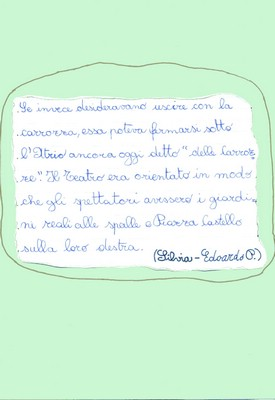 Se invece desideravano uscire con la
carrozza, essa poteva fermarsi sotto
l'Atrio ancora oggi detto "delle Carroz-
ze". Il Teatro era orientato in modo
che gli spettatori avessero i giardi-
ni reali alle spalle e Piazza Castello
sulla loro destra.
(Silvia - Edoardo P.)